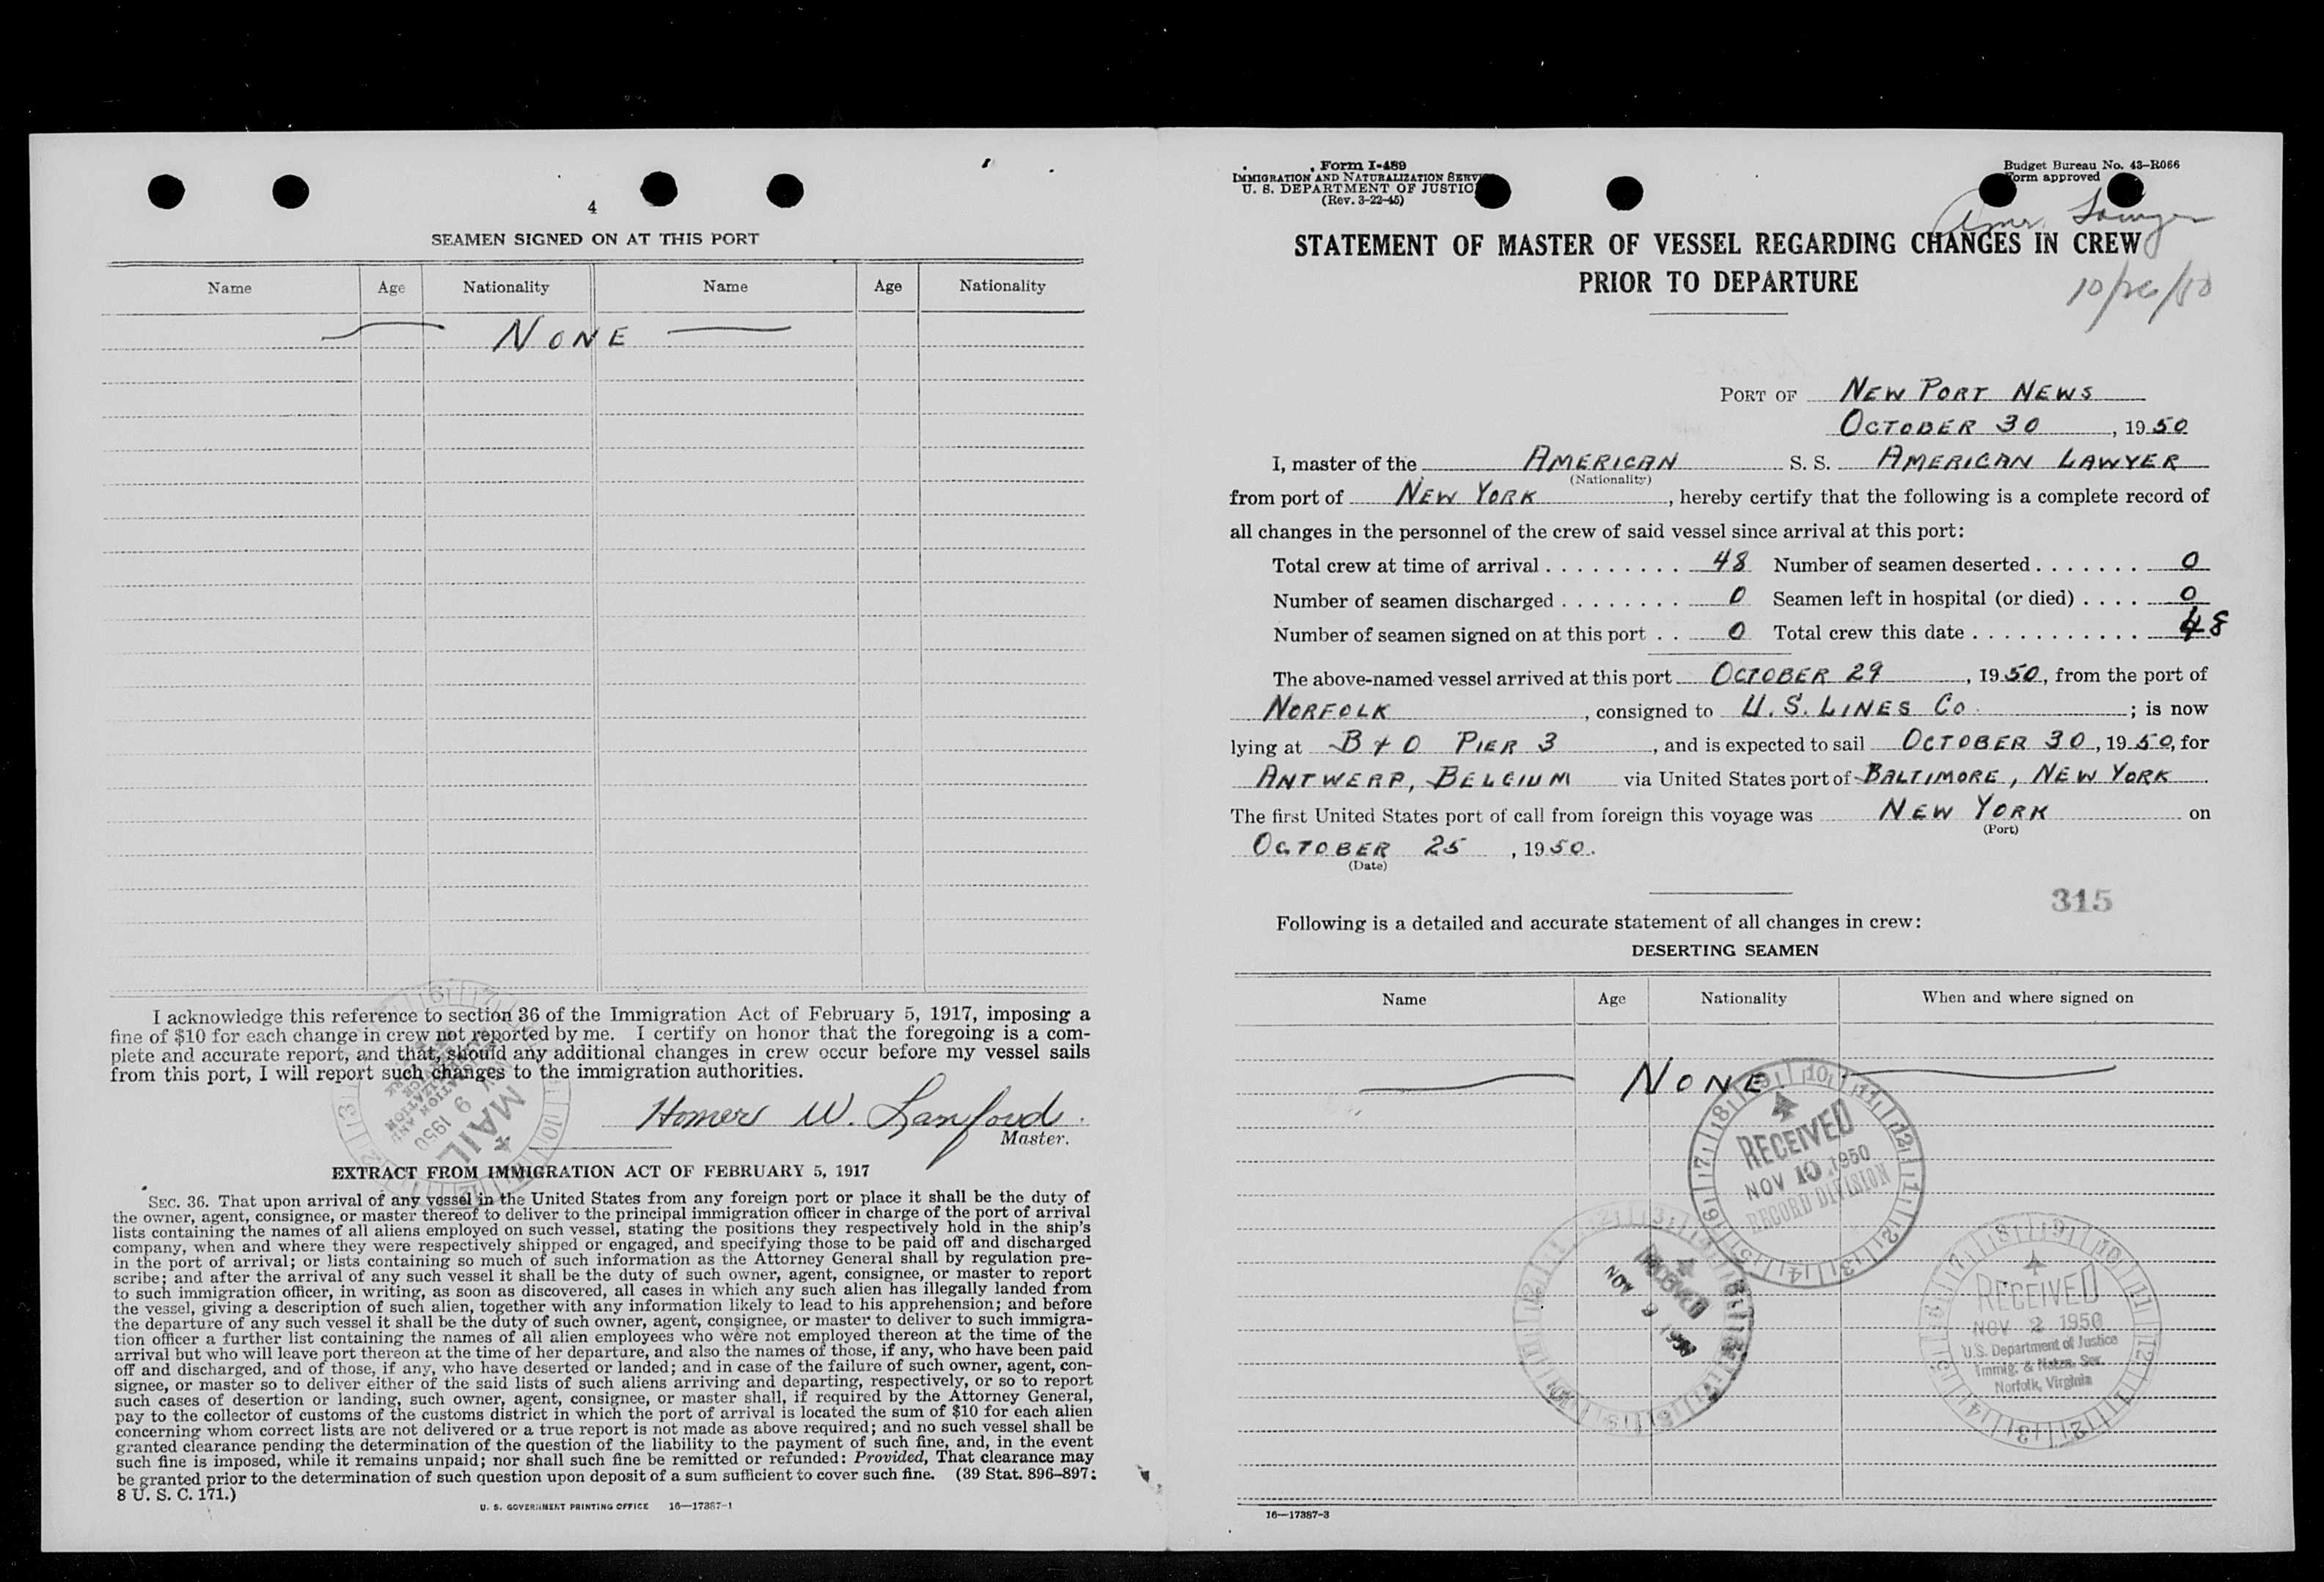 4
SEAMEN SIGNED ON AT THIS PORT
Name Age Nationality Name Age Nationality
NONE
I acknowledge this reference to section 36 of the Immigration Act of February 5, 1917, imposing a
fine of $10 for each change in crew not reported by me. I certify on honor that the foregoing is a com-
plete and accurate report, and that, should any additional changes in crew occur before my vessel sails
from this port, I will report such changes to the immigration authorities.
Homer W. Lanford
Master.
MAIL
9 1950
EXTRACT FROM IMMIGRATION ACT OF FEBRUARY 5, 1917
SEC. 36. That upon arrival of any vessel in the United States from any foreign port or place it shall be the duty of
the owner, agent, consignee, or master thereof to deliver to the principal immigration officer in charge of the port of arrival
lists containing the names of all aliens employed on such vessel, stating the positions they respectively hold in the ship's
company, when and where they were respectively shipped or engaged, and specifying those to be paid off and discharged
in the port of arrival; or lists containing so much of such information as the Attorney General shall by regulation pre-
scribe; and after the arrival of any such vessel it shall be the duty of such owner, agent, consignee, or master to report
to such immigration officer, in writing, as soon as discovered, all cases in which any such alien has illegally landed from
the vessel, giving a description of such alien, together with any information likely to lead to his apprehension; and before
the departure of any such vessel it shall be the duty of such owner, agent, consignee, or master to deliver to such immigra-
tion officer a further list containing the names of all alien employees who were not employed thereon at the time of the
arrival but who will leave port thereon at the time of her departure, and also the names of those, if any, who have been paid
off and discharged, and of those, if any, who have deserted or landed; and in case of the failure of such owner, agent, con-
signee, or master so to deliver either of the said lists of such aliens arriving and departing, respectively, or so to report
such cases of desertion or landing, such owner, agent, consignee, or master shall, if required by the Attorney General,
pay to the collector of customs of the customs district in which the port of arrival is located the sum of $10 for each alien
concerning whom correct lists are not delivered or a true report is not made as above required; and no such vessel shall be
granted clearance pending the determination of the question of the liability to the payment of such fine, and, in the event
such fine is imposed, while it remains unpaid; nor shall such fine be remitted or refunded: Provided, That clearance may
be granted prior to the determination of such question upon deposit of a sum sufficient to cover such fine. (39 Stat. 896-897;
8 U. S. C. 171.)
U. S. GOVERNMENT PRINTING OFFICE 16—17387-1
Form I-489
IMMIGRATION AND NATURALIZATION SERV
U. S. DEPARTMENT OF JUSTIC
(Rev. 3-22-45)
Budget Bureau No. 43-R066
Form approved
Amer. Lawyer
10/26/50
STATEMENT OF MASTER OF VESSEL REGARDING CHANGES IN CREW
PRIOR TO DEPARTURE
PORT OF NEW PORT NEWS
OCTOBER 30, 1950
I, master of the AMERICAN S. S. AMERICAN LAWYER
(Nationality)
from port of NEW YORK, hereby certify that the following is a complete record of
all changes in the personnel of the crew of said vessel since arrival at this port:
Total crew at time of arrival 48 Number of seamen deserted 0
Number of seamen discharged 0 Seamen left in hospital (or died) 0
Number of seamen signed on at this port 0 Total crew this date 48
The above-named vessel arrived at this port OCTOBER 29, 1950, from the port of
NORFOLK, consigned to U.S. LINES CO.; is now
lying at B & O PIER 3, and is expected to sail OCTOBER 30, 1950, for
ANTWERP, BELGIUM via United States port of BALTIMORE, NEW YORK.
The first United States port of call from foreign this voyage was NEW YORK on
(Port)
OCTOBER 25, 1950.
(Date)
315
Following is a detailed and accurate statement of all changes in crew:
DESERTING SEAMEN
Name Age Nationality When and where signed on
NONE
RECEIVED
NOV 10 1950
RECORD DIVISION
RECEIVED
NOV 9 1950
RECEIVED
NOV 2 1950
U.S. Department of Justice
Immig. & Natzn. Ser.
Norfolk, Virginia
16—17387-3